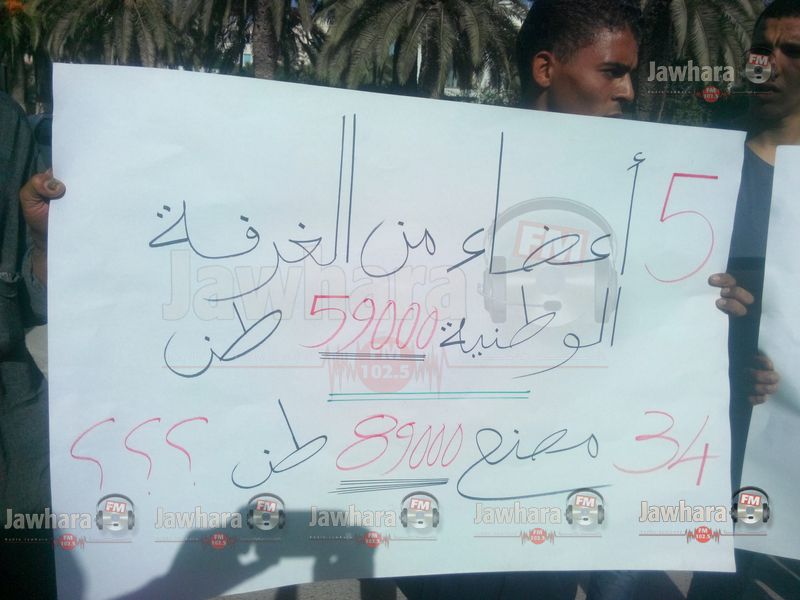 Jawhara FM
5 أعضاء من الغرفة
الوطنية 59000 طن
34 مصنع 89000 طن ؟؟؟
Jawhara FM
102.5
Jawhara FM 102.5
Jawhara FM 102.5
Jawhara FM 102.5
Jawhara FM 102.5
Jawhara FM 102.5